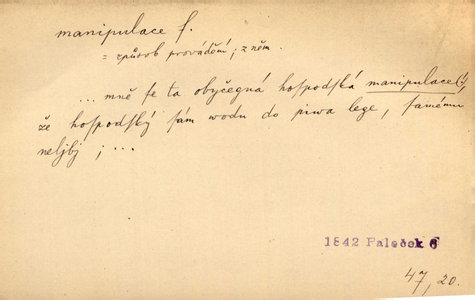 manipulace f.
= způsob provádění; z něm.
... mně se ta obyčegná hospodská manipulace(,
že hospodský sám wodu do piwa lege, samému
neljbj; ...
1842 Paleček 6
47, 20.